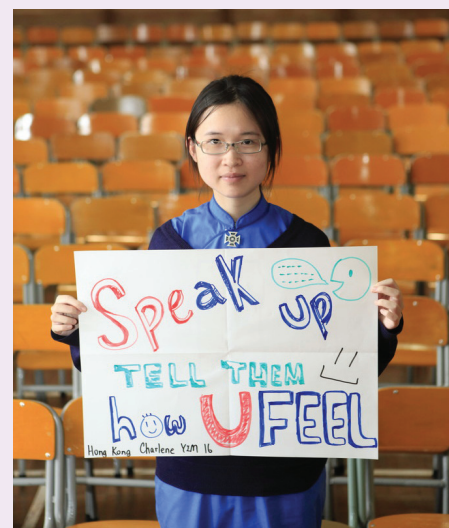 Speak
up
TELL THEM
how U FEEL
Hong Kong Charlene Y2M 16